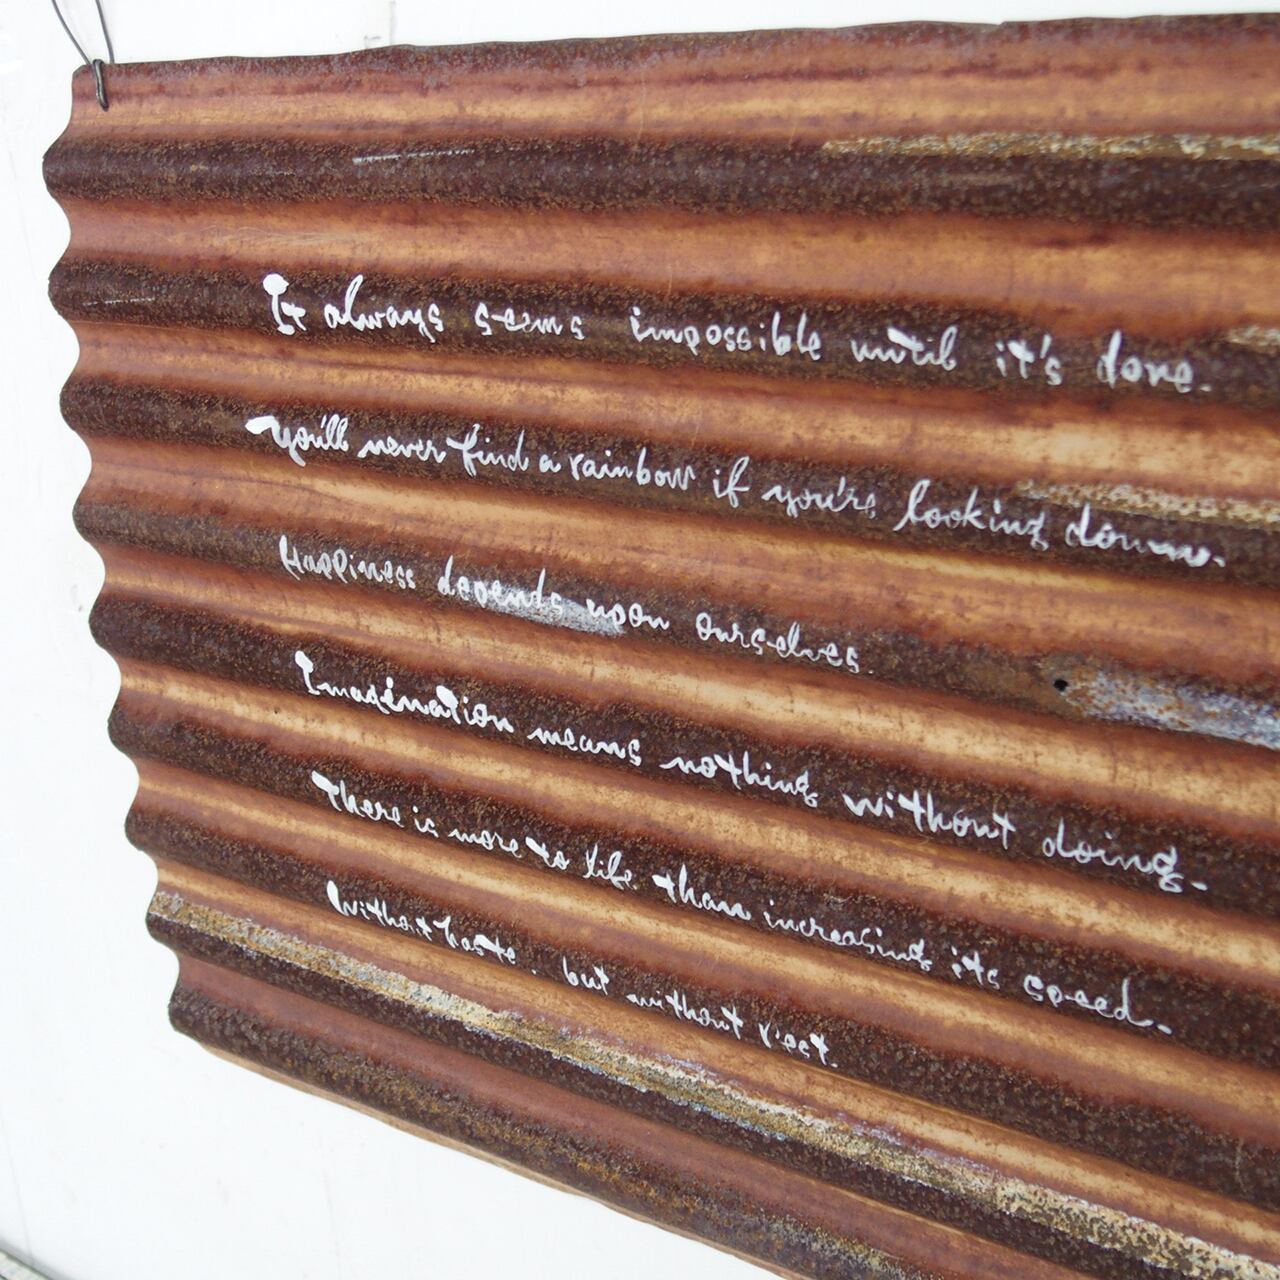 It always seems impossible until it's done.
You'll never find a rainbow if you're looking down.
Happiness depends upon ourselves.
Imagination means nothing without doing.
There is more to life than increasing its speed.
Without haste. but without rest.